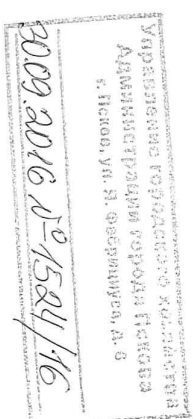 Управление городского хозяйства
Администрации города Пскова
г. Псков, ул. Я. Фабрициуса, д. 6
30.09.2016 № 1524/16